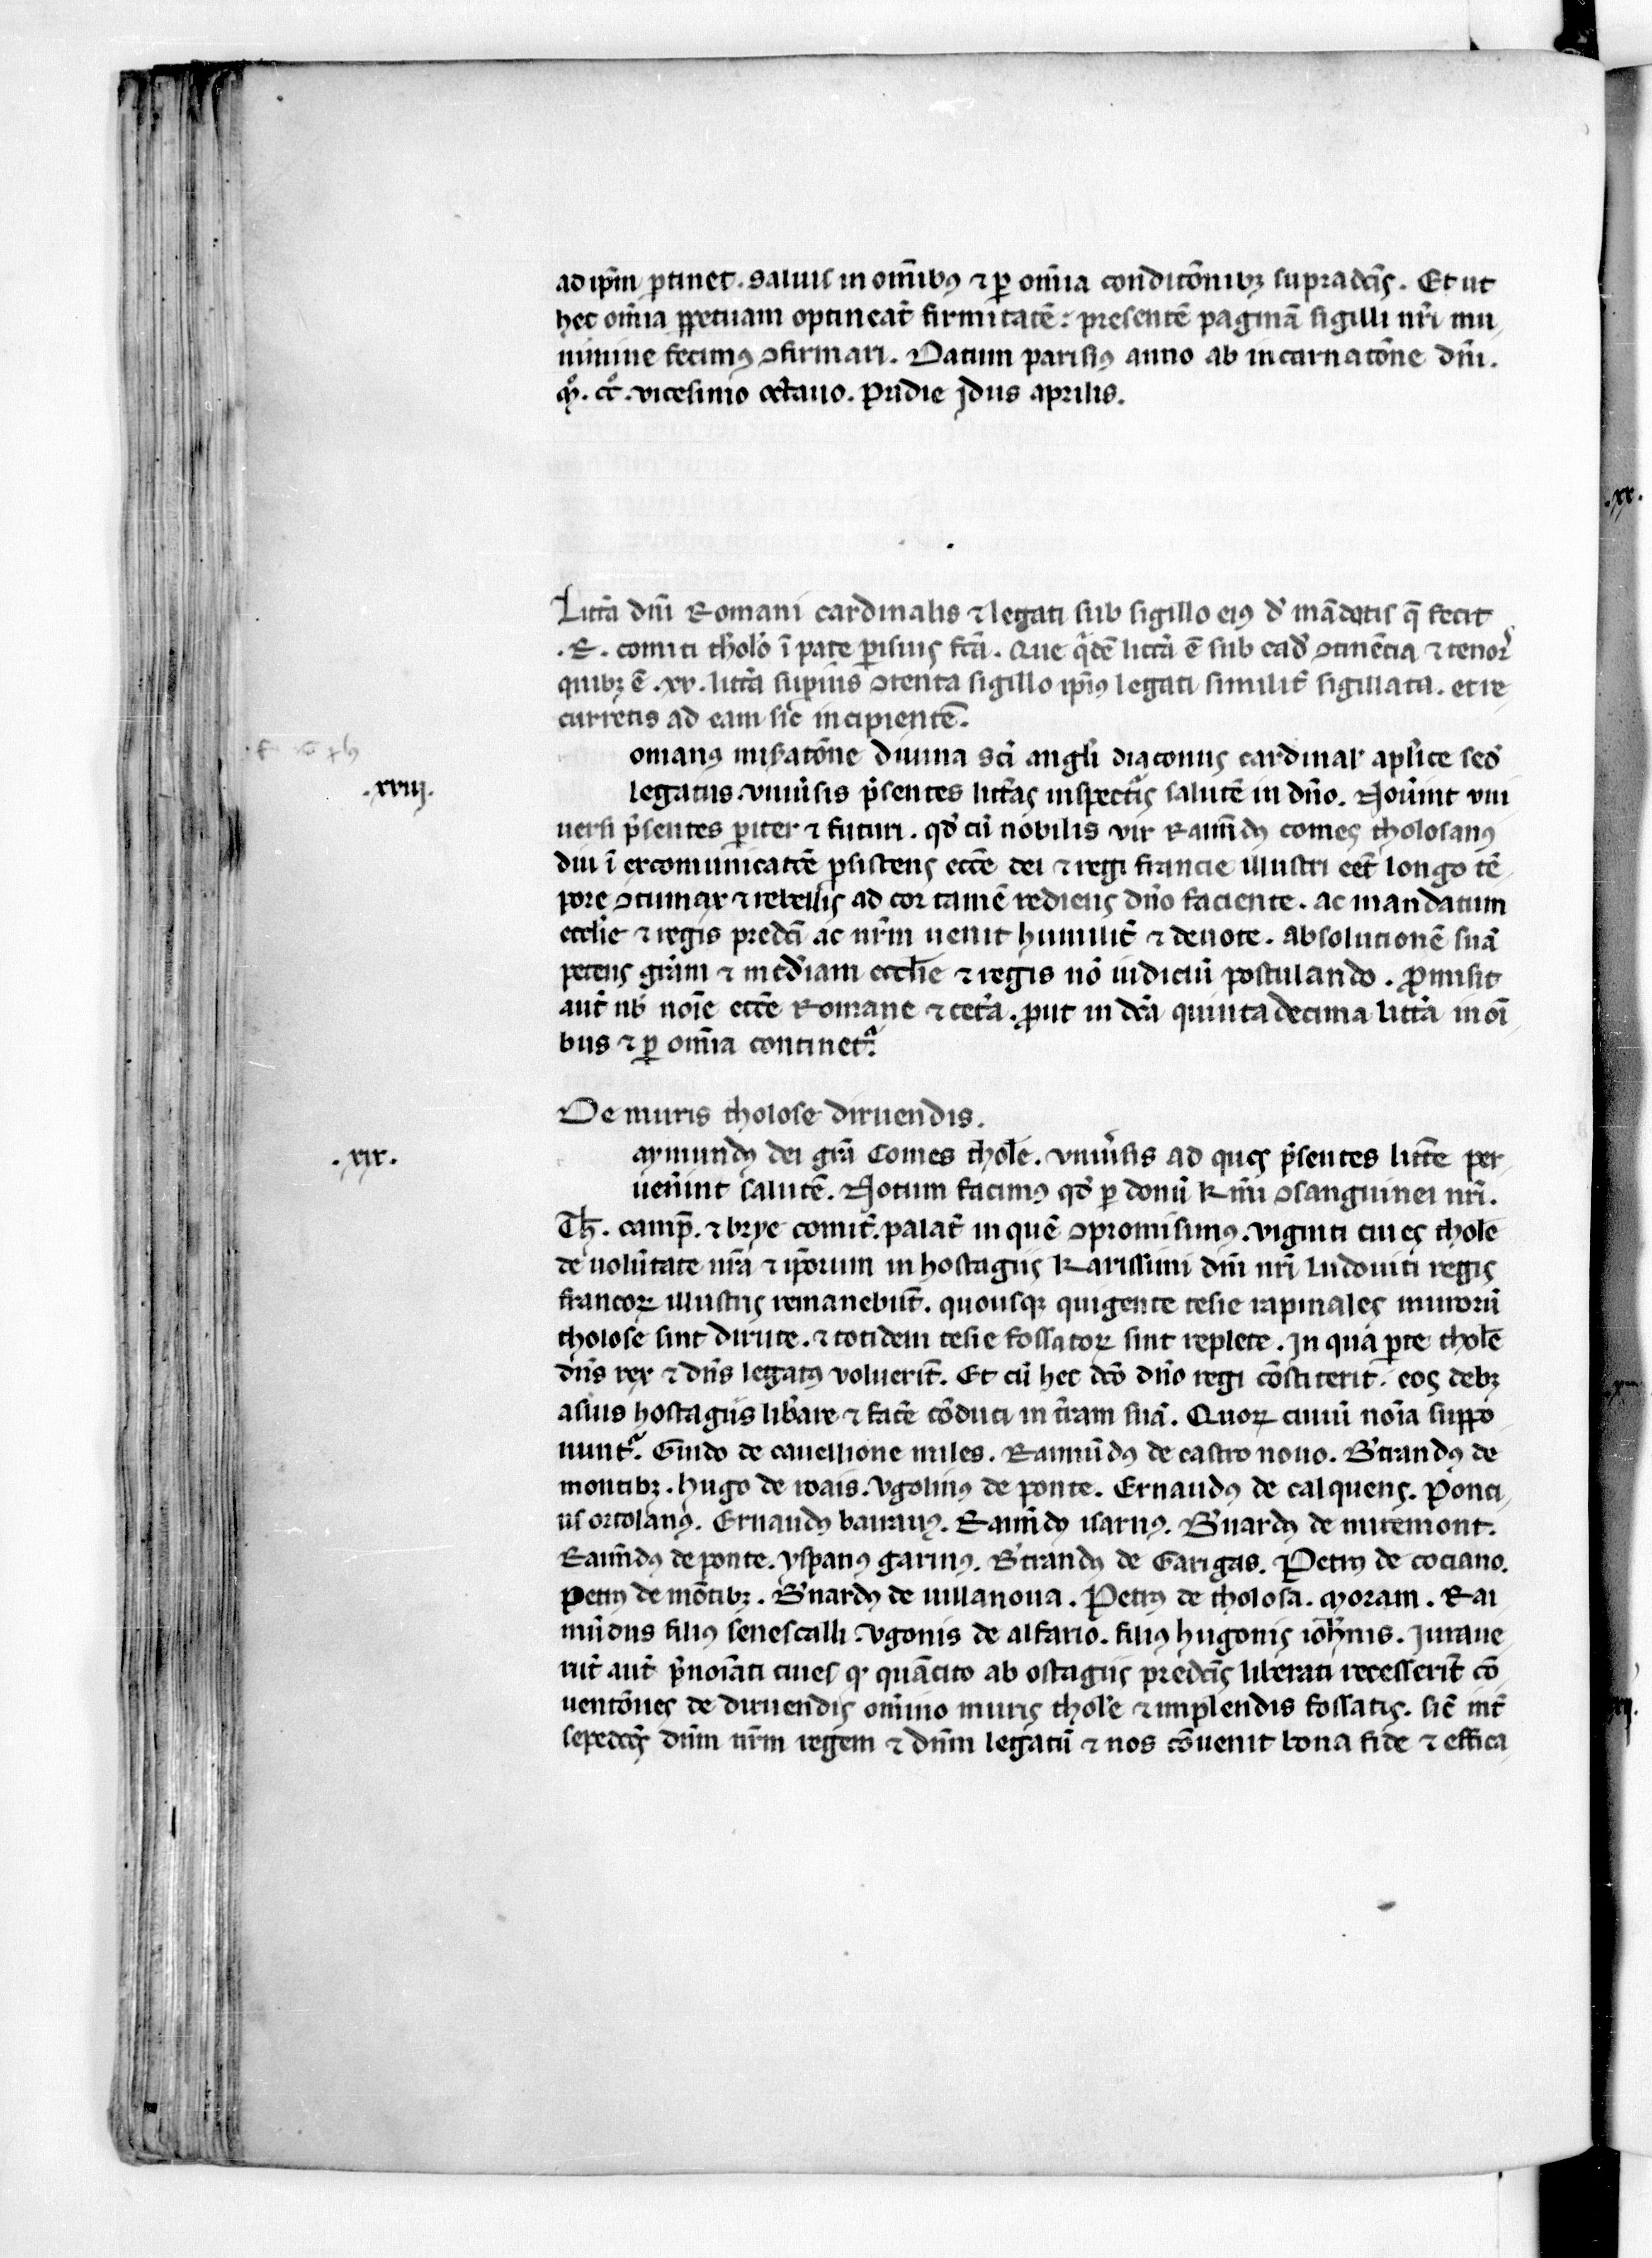 ad ip̄m ꝑtinet. saluis in om̄ibꝫ ⁊ ꝑ om̄ia condicōnibꝫ supradc̄is. Et ut
hec om̄ia ꝑpetuam optineāt firmitatē: presentē paginā sigilli nr̄i mu
nimine fecimꝰ ꝯfirmari. Datum parisiꝰ anno ab incarnatōne dn̄i.
.xviii.
mͦ. ccͦ. vicesimo octauo. Pridie jdus aprilis.
Litt̄a dn̄i Romani cardinalis ⁊ legati sub sigillo eiꝰ d' mādatis q̄ fecit
.R. comiti tholo͛ ī pace parisiꝰ fc̄a. Que qͥdē litt̄a ē sub ead̛ ꝯtinētia ⁊ tenor͛
quibꝫ ē .xv. litt̄a supiꝰ ꝯtenta sigillo ip̄iꝰ legati similit̄ sigillata. et re
curretis ad eam sic incipientē.
omanꝰ mis̛atōne diuina sc̄i angl̄i diaconus cardinal̛ apl̄ice sed̛
legatus. vniu͛sis p̄sentes litt̄as inspect̛is salutē in dn̄o. Nou͛int vni
uersi p̄sentes pariter ⁊ futuri. qd̛ cū nobilis vir Raim̄dꝰ comes tholosanꝰ
diu ī excomunicatōe ꝑsistens ecc̄e dei ⁊ regi francie illustri eēt longo tē
pore ꝯtumax ⁊ rebellis ad cor tamē rediens dn̄o faciente. ac mandatum
eccl̄ie ⁊ regis predc̄i ac nr̄m uenit humilit̄ ⁊ deuote. absolutionē suā
petens gr̄am ⁊ m̄diam eccl̄ie ⁊ regis nō iudiciū postulando. ꝓmisit
aut̄ nb̛ noīe ecc̄e Romane ⁊ cet̄a. ꝓut in dc̄a quinta decima litt̄a in oī
bus ⁊ ꝑ om̄ia continet̛.
De muris tholose diruendis.
.xix.
aymundꝰ dei gr̄a Comes thol̄e. vniu͛sis ad quos p̄sentes litt̄e per
uen̄int salutē. Notum facimꝰ qd̛ ꝑ donū k̄mi ꝯsanguinei nr̄i.
Th̄. camp̄. ⁊ brye comit̄. palat̄ in quē ꝯpromisimꝰ. viginti ciues thol̄e
de volūtate nr̄a ⁊ ip̄orum in hostagiis karissimi dn̄i nr̄i ludouici regis
francoꝝ illustris remanebūt. quousqꝫ quigente tesie rapinales murorū
tholose sint dirute. ⁊ totidem tesie fossatoꝝ sint replete. In qua parte thol̄e
dn̄s rex ⁊ dn̄s legatꝰ voluerīt. Et cū hec dc̄o dn̄o regi cōstiterit. eos debꝫ
a suis hostagiis lib͛are ⁊ fac̄e cōduci in t̄ram suā. Quoꝝ ciuiū noīa suppo
nunt̛. Guido de cauellione miles. Raimūdꝰ de castro nouo. B̛trandꝰ de
montibꝫ. hugo de roais. vgolinꝰ de ponte. Ernaudꝰ de calquens. Ponci
us ortolanꝰ. Ernaudꝰ bairauꝰ. Raim̄dꝰ isarnꝰ. B̛nardꝰ de miremont.
Raim̄dꝰ de ponte. yspanꝰ garinꝰ. B̛trandꝰ de Garigas. Petrꝰ de cociano.
Petrꝰ de mōtibꝫ. B̛nardꝰ de uillanoua. Petrꝰ de tholosa. moram. Rai
mūdus filiꝰ senescalli. vgonis de alfario. filiꝰ hugonis ioh̄nis. Iuraue
rūt aut̄ p̄noīati ciues qꝰ quācito ab ostagiis predc̄is liberati recesserīt cō
uentōnes de diruendis om̄ino muris thol̄e ⁊ implendis fossatis. sic̄ int̄
sepedc̄os dn̄m nr̄m regem ⁊ dn̄m legatū ⁊ nos cōuenit bona fide ⁊ effica